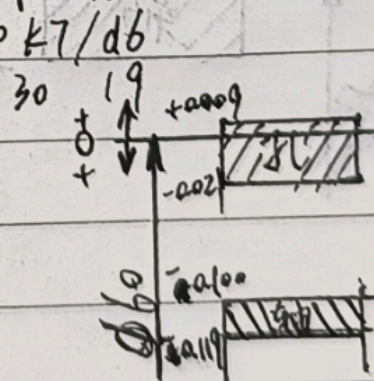 K7/d6
30 19
+
0
+
+0.009
孔
-0.021
-0.100
轴
-0.119
φ90